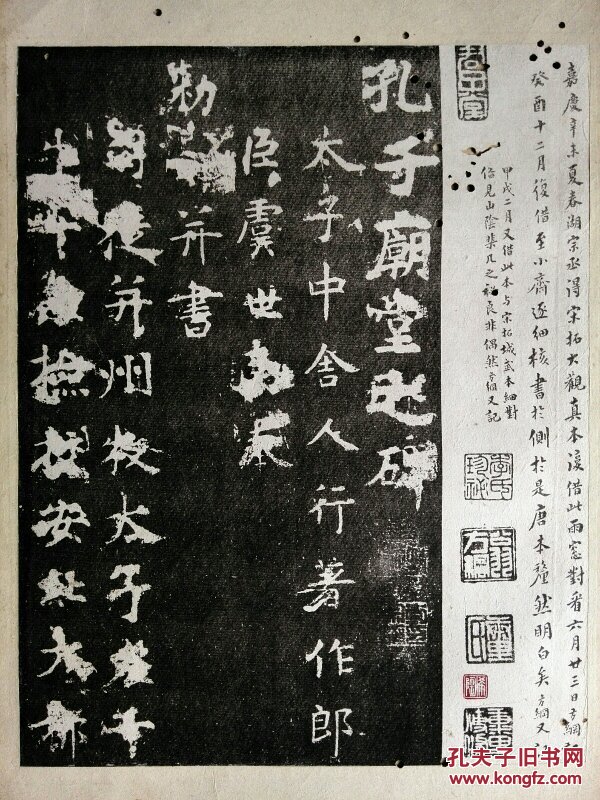 嘉慶辛未夏春湖宗丞得宋拓大觀真本復借此雨窓對看六月廿三日方綱記
癸酉十二月復借至小齋逐細核書於側於是唐本釐然明白矣方綱又記
甲戌二月又借此本与宋拓城武本細對
信見山陰棐几之祕良非偶然方綱又記
李氏珍祕
孔子廟堂之碑
太子中舍人行著作郎
臣虞世南奉
勑并書
司徒并州牧太子左千
牛檢校安北大都
孔夫子旧书网
www.kongfz.com